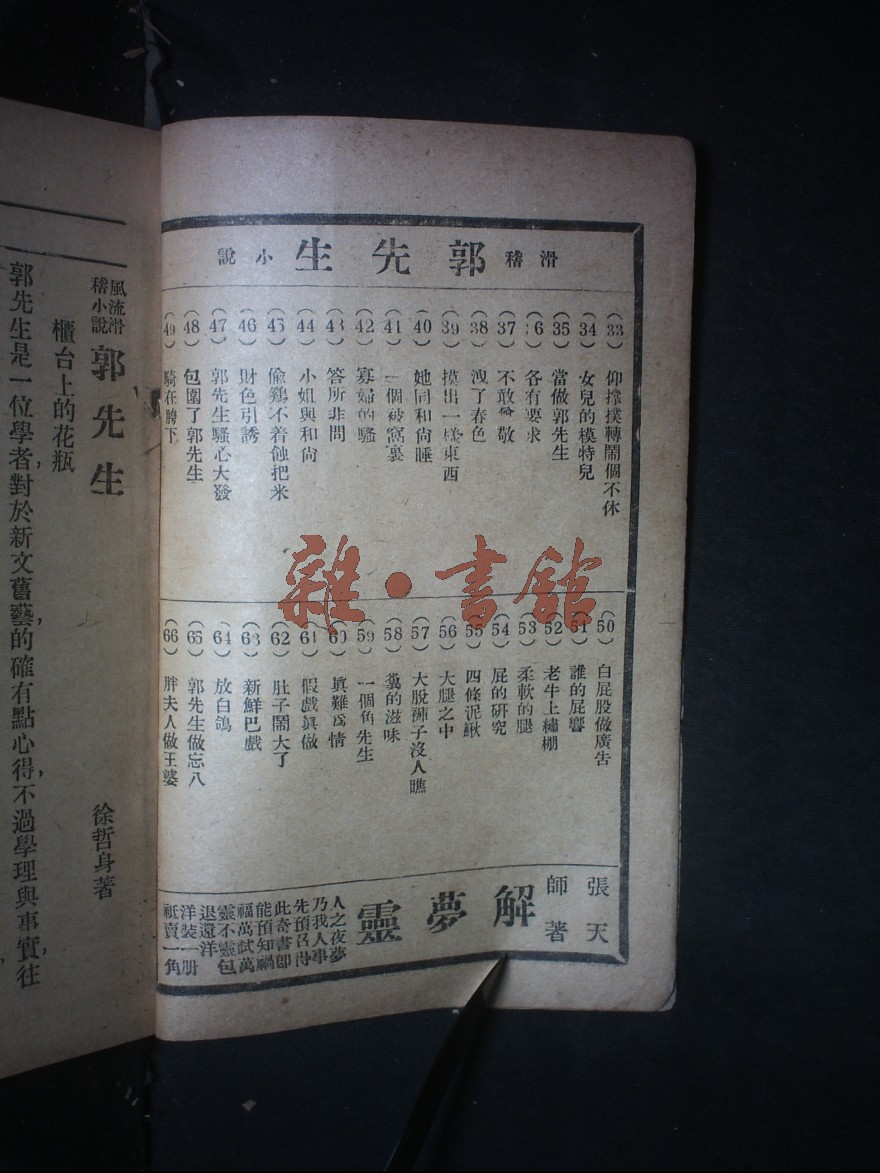 滑稽 郭先生 小說
(33) 仰撑撲轉鬧個不休
(34) 女兒的模特兒
(35) 當做郭先生
(36) 各有要求
(37) 不敢曾敬
(38) 洩了春色
(39) 摸出一樣東西
(40) 她同和尙睡
(41) 一個被窩裏
(42) 寡婦的騷
(43) 答所非問
(44) 小姐與和尙
(45) 偷鷄不着蝕把米
(46) 財色引誘
(47) 郭先生騷心大發
(48) 包圍了郭先生
(49) 騎在胯下
(50) 白屁股做廣告
(51) 誰的屁響
(52) 老牛上繡棚
(53) 柔軟的腿
(54) 屁的硏究
(55) 四條泥鰍
(56) 大腿之中
(57) 大脫褲子沒人瞧
(58) 糞的滋味
(59) 一個角先生
(60) 眞難爲情
(61) 假戲眞做
(62) 肚子鬧大了
(63) 新鮮巴戲
(64) 放白鴿
(65) 郭先生做忘八
(66) 胖夫人做王婆
張天師著
解夢靈
人之夜夢
乃我人事
先預召得
此奇書卽
能預知禍
福萬試萬
靈不靈包
退還洋
洋裝一册
祇賣一角
風流滑稽小說 郭先生 徐哲身著
櫃台上的花瓶
郭先生是一位學者，對於新文舊藝，的確有點心得，不過學理與事實，往
雜·書館